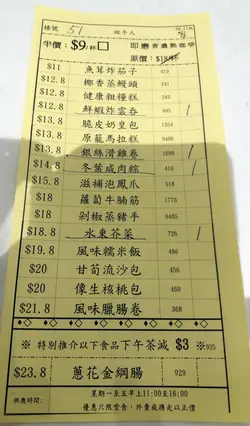 檯號 51 經手人
半價: $9/杯 □ 即磨香濃熱咖啡
原價: $18/杯
$11 魚茸炸茄子 413
$12.8 椰香蒸饅頭 241
$12.8 健康粗糧糕 243
$12.8 鮮蝦炸雲吞 945 1
$13.8 脆皮奶皇包 1354
$13.8 原籠馬拉糕 9486
$13.8 銀絲滑雞卷 1690 1
$14.8 冬葉咸肉粽 416 1
$15.8 滋補泡鳳爪 518
$18 蘿蔔牛腩筋 1773
$18 剁椒蒸豬手 9485
$18.8 水東芥菜 726 1
$19.8 風味糯米飯 486
$20 甘荀流沙包 456
$20 像生核桃包 469
$21.8 風味臘腸卷 368
※ 特別推介以下食品下午茶減 $3 ※935
$23.8 蔥花金網腸 929
供應時間: 星期一至五早上11:00至16:00
優惠只限堂食，外賣或携走以正價